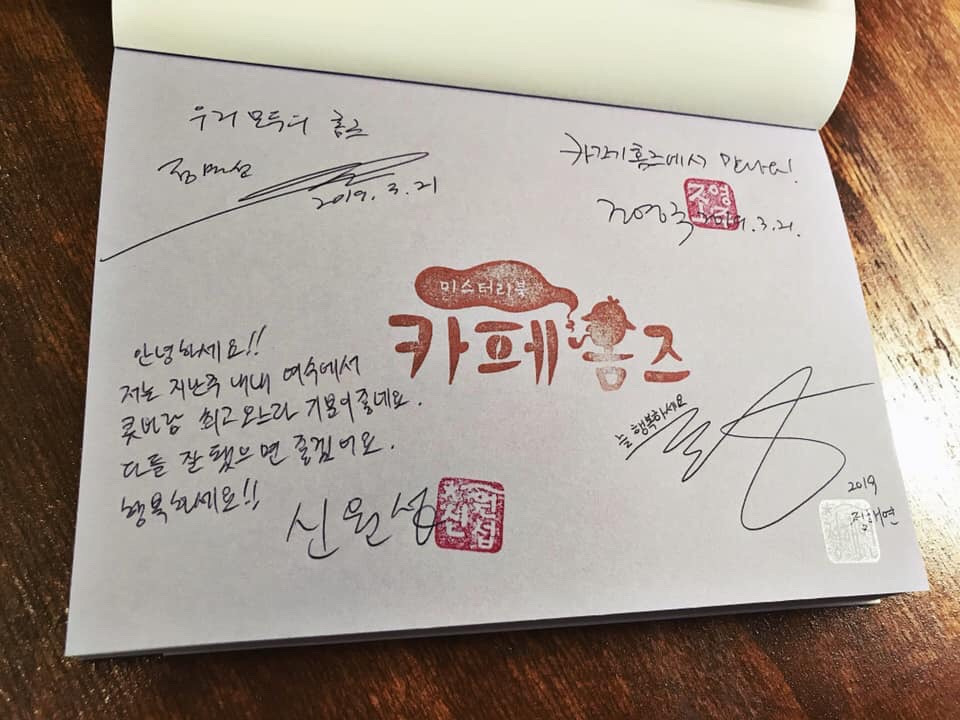 우리 모두의 홈즈
정명섭
2019. 3. 21
카페 홈즈에서 만나요!
조영주 2019. 3. 21.
조영주
미스터리북
카페홈즈
안녕하세요!!
저는 지난주 내내 여수에서
콧바람 쐬고 오느라 기분이 좋네요.
다들 잘 됐으면 좋겠어요.
행복하세요!!
신원섭
신원섭
늘 행복하세요
2019
정해연